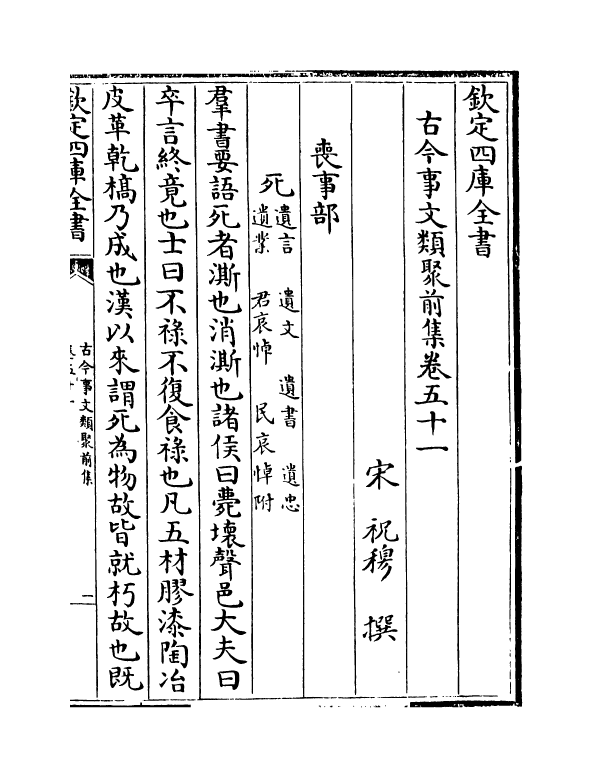 欽定四庫全書
古今事文類聚前集卷五十一
宋 祝穆 撰
喪事部
死
遺言 遺文 遺書 遺忠
遺業 君哀悼 民哀悼附
羣書要語死者澌也消澌也諸侯曰薨壞聲邑大夫曰
卒言終竟也士曰不祿不復食祿也凡五材膠漆陶冶
皮革乾槁乃成也漢以來謂死為物故皆就朽故也既
欽定四庫全書
古今事文類聚前集
卷五十一
一